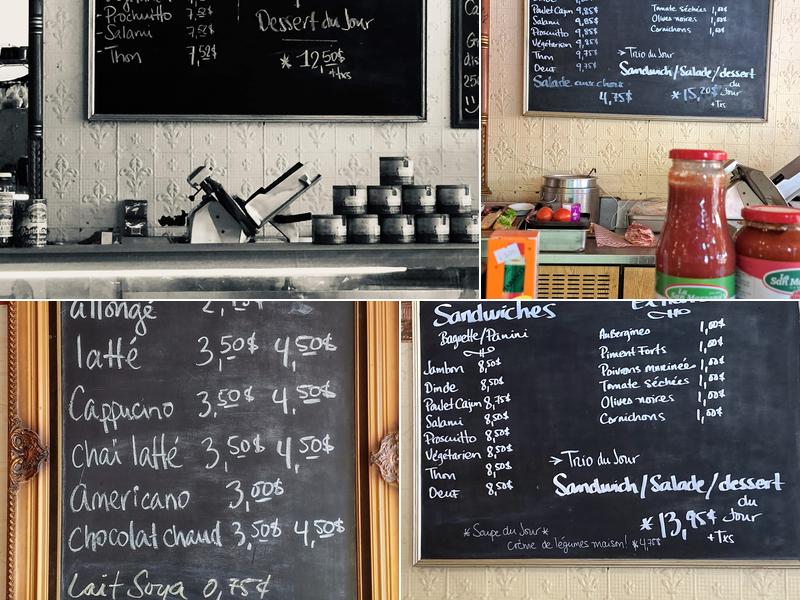 Prochuitto 7,50$
Salami 7,50$
Thon 7,50$
Dessert du Jour
* 12,50$
+txs
Poulet Cajun 9,85$
Salami 9,85$
Prosciutto 9,85$
Végétarien 9,85$
Thon 9,75$
Oeuf 9,75$
Salade aux choux
4,75$
Tomate séchées 1,00$
Olives noires 1,00$
Cornichons 1,00$
→Trio du Jour
Sandwich/Salade/dessert
du
* 15,20$ Jour
+Txs
La
San Marzano
allongé
latté 3,50$ 4,50$
Cappucino 3,50$ 4,50$
chaï latté 3,50$ 4,50$
Americano 3,00$
Chocolat chaud 3,50$ 4,50$
Lait Soya 0,75¢
Sandwiches
Baguette/Panini
Jambon 8,50$
Dinde 8,50$
Poulet Cajun 8,75$
Salami 8,50$
Proscuitto 8,50$
Végétarien 8,50$
Thon 8,50$
Oeuf 8,50$
Aubergines 1,00$
Piment Forts 1,00$
Poivrons marinées 1,00$
Tomate séchées 1,00$
Olives noires 1,00$
Cornichons 1,00$
→Trio du Jour
Sandwich/Salade/dessert
du
* 13,95¢ Jour
+Txs
*Soupe du Jour*
crème de légumes maison! *4,75$